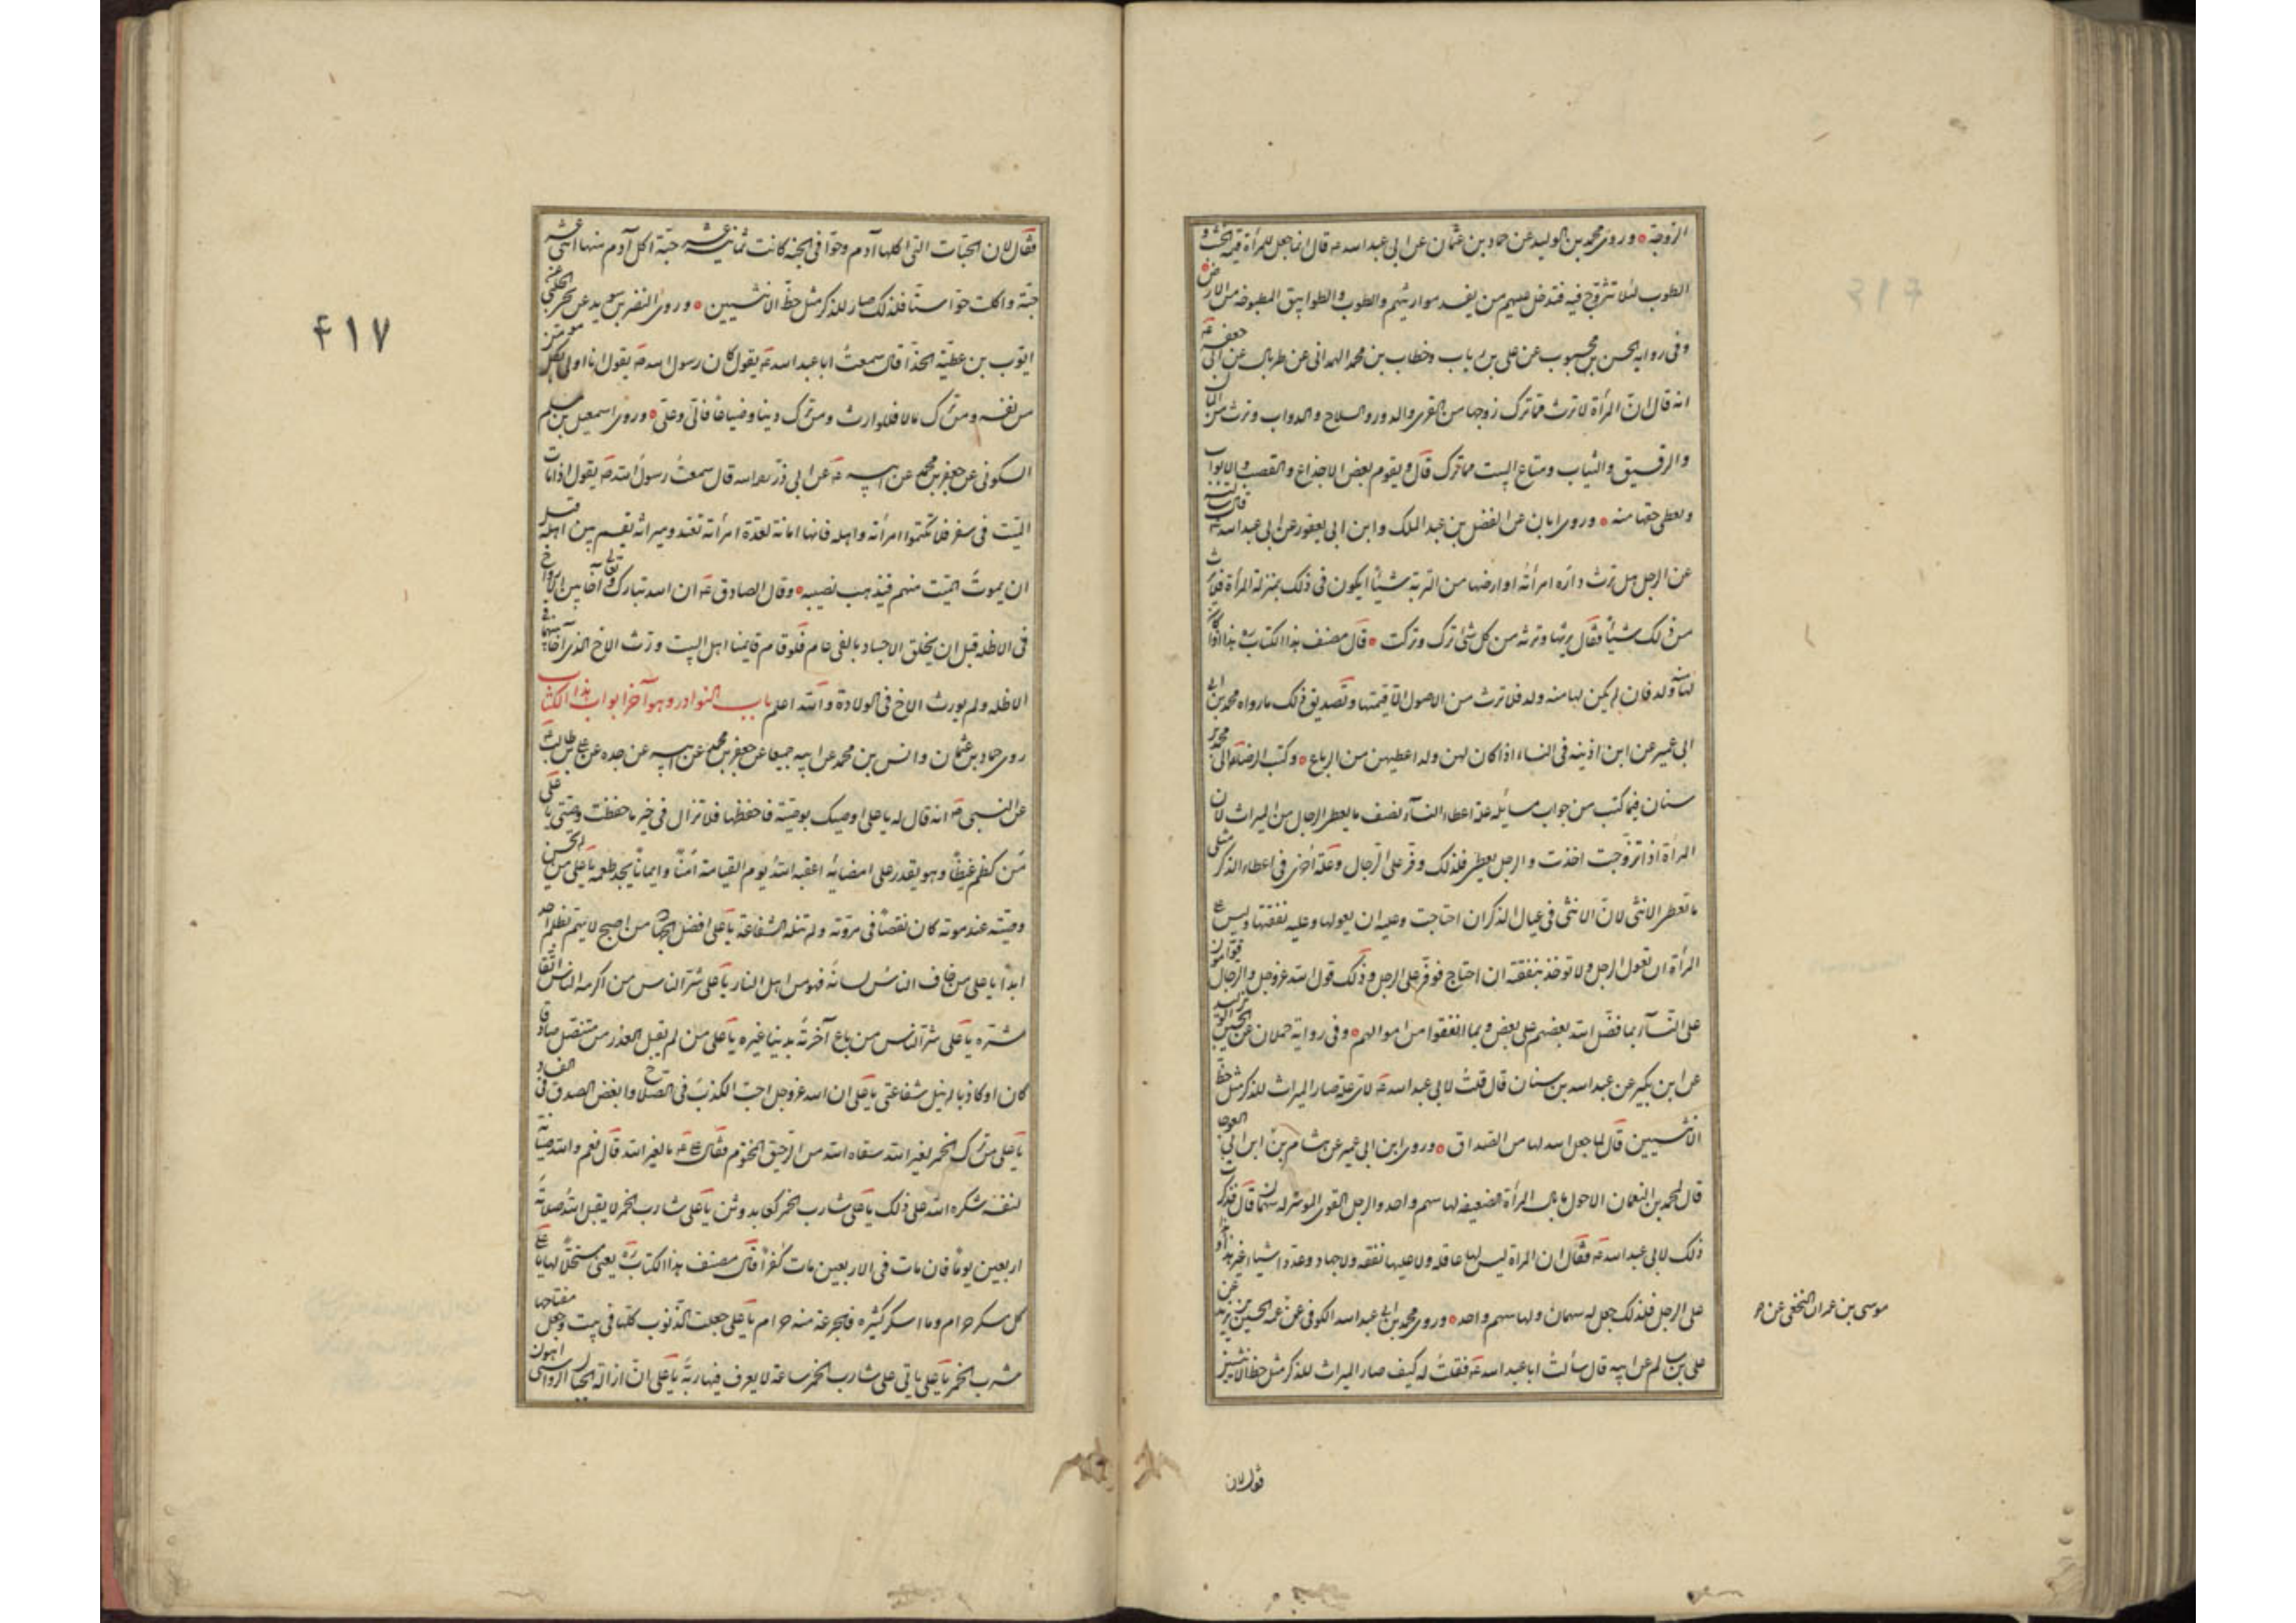 الزوجة وروى محمد بن الوليد عن حماد بن عثمان عن ابى عبد الله ع قال انما جعل للمرأة قيمة الخشب و
الطوب لئلا تتزوج فيه فتدخل عليهم من يفسد مواريثهم والطوب والطوابيق المطبوخة من الارض
وفى رواية الحسن بن محبوب عن على بن رباب وخطاب بن محمد الهمدانى عن طربال عن ابى جعفر ع
انه قال ان المرأة لا ترث مما ترك زوجها من القرى والدور والسلاح والدواب وترث من المال
والرقيق والثياب ومتاع البيت مما ترك قال ويقوم بعض الاجذاع والقصب والابواب
وتعطى حقها منه وروى ابان عن الفضل بن عبد الملك وابن ابى يعفور عن ابى عبد الله ع قال سألته
عن الرجل هل يرث دار امرأته او ارضها من التربة شيئا ايكون فى ذلك بمنزلة المرأة فلا يرث
من ذلك شيئا فقال يرثها وترثه من كل شئ ترك وتركت قال مصنف هذا الكتاب ره هذا اذا كان
لها منه ولد فان لم يكن لها منه ولد فلا ترث من الاصول الا قيمتها وتصديق ذلك ما رواه محمد بن
ابى عمير عن ابن اذينه فى النساء اذا كان لهن ولد اعطين من الرباع وكتب الرضا ع الى محمد بن
سنان فيما كتب من جواب مسائله علة اعطاء النساء نصف ما يعطى الرجال من الميراث لان
المرأة اذا تزوجت اخذت والرجل يعطى فلذلك وفر على الرجال وعلة اخرى فى اعطاء الذكر مثلى
ما تعطى الانثى لان الانثى فى عيال الذكر ان احتاجت وعليه ان يعولها وعليه نفقتها وليس على
المرأة ان تعول الرجل ولا توخذ بنفقته ان احتاج فوفر على الرجل وذلك قول الله عز وجل الرجال قوامون
على النساء بما فضل الله بعضهم على بعض وبما انفقوا من اموالهم وفى رواية حمدان بن الحسين
عن ابن بكير عن عبد الله بن سنان قال قلت لابى عبد الله ع لاى علة صار الميراث للذكر مثل حظ
الانثيين قال لما جعل الله لها من الصداق وروى ابن ابى عمير عن هشام بن ان ابن ابى العوجا
قال لمحمد بن النعمان الاحول ما بال المرأة الضعيفة لها سهم واحد والرجل القوى الموسر له سهمان قال فذكرت
ذلك لابى عبد الله ع فقال ان المرأة ليس لها عاقلة ولا عليها نفقة ولا جهاد وعدد اشياء غير هذا وهذا
على الرجل فلذلك جعل له سهمان ولها سهم واحد وروى محمد بن ابى عبد الله الكوفى عن عمه الحسين بن يزيد عن
على بن سالم عن ابيه قال سألت ابا عبد الله ع فقلت له كيف صار الميراث للذكر مثل حظ الانثيين
موسى بن عمران النخعى عن
فقال لان
٤١٧
فقال لان الحبات التى اكلها آدم وحوا فى الجنة كانت ثمانية عشر حبة اكل آدم منها اثنى عشر
حبة واكلت حوا ستا فلذلك صار للذكر مثل حظ الانثيين وروى النضر بن سويد عن يحيى الحلبى عن
ايوب بن عطية الحذا قال سمعت ابا عبد الله ع يقول كان رسول الله ص يقول انا اولى بكل مومن
من نفسه ومن ترك مالا فللوارث ومن ترك دينا وضياعا فالى وعلى وروى اسمعيل بن مسلم
السكونى عن جعفر بن محمد عن ابيه ع عن ابى ذر ره قال سمعت رسول الله ص يقول اذا مات
الميت فى سفر فلا تكتموا امرأته واهله فانها امانة لعدة امرأته تعتد وميراثه يقسم بين اهله قبل
ان يموت الميت منهم فيذهب نصيبه وقال الصادق ع ان الله تبارك وتعالى آخا بين الارواح
فى الاظلة قبل ان يخلق الاجساد بالفى عام فلو قام قايمنا اهل البيت ورث الاخ الذى آخا بينهما فى
الاظلة ولم يورث الاخ فى الولادة والله اعلم باب النوادر وهو آخر ابواب هذا الكتاب
روى حماد بن عثمان وانس بن محمد عن ابيه جميعا عن جعفر بن محمد عن ابيه عن جده عن على بن ابى طالب ع
عن النبى ص انه قال له يا على اوصيك بوصية فاحفظها فلا تزال فى خير ما حفظت وصيتى يا على
من كظم غيظا وهو يقدر على امضائه اعقبه الله يوم القيامة امنا وايمانا يجد طعمه يا على من لم يحسن
وصيته عند موته كان نقصا فى مروته ولم تنله الشفاعة يا على افضل الجهاد من اصبح لا يهم بظلم احد
ابدا يا على من خاف الناس لسانه فهو من اهل النار يا على شر الناس من اكرمه الناس اتقا
شره يا على شر الناس من باع آخرته بدنيا غيره يا على من لم يقبل العذر من متنصل صادقا
كان او كاذبا لم ينل شفاعتى يا على ان الله عز وجل احب الكذب فى الصلاح وابغض الصدق فى الفساد
يا على من ترك الخمر لغير الله سقاه الله من الرحيق المختوم فقال على ع لغير الله قال نعم والله صيانة
لنفسه شكره الله على ذلك يا على شارب الخمر كعابد وثن يا على شارب الخمر لا يقبل الله صلاته
اربعين يوما فان مات فى الاربعين مات كفرا قال مصنف هذا الكتاب ره يعنى مستحلا لها يا على
كل مسكر حرام وما اسكر كثيره فالجرعة منه حرام يا على جعلت الذنوب كلها فى بيت وجعل مفتاحها
شرب الخمر يا على ياتى على شارب الخمر ساعة لا يعرف فيها ربه يا على ان ازالة الجبال الرواسى اهون